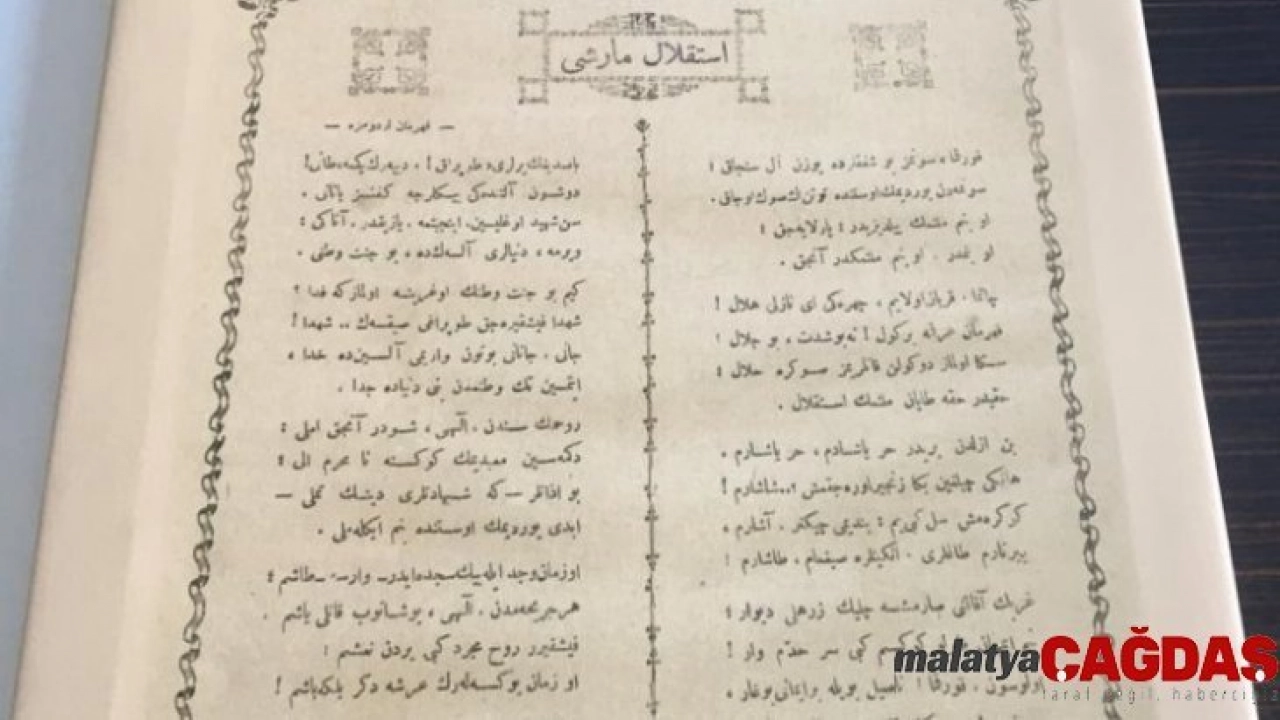 استقلال مارشی
— قهرمان اردومزه —
قورقما، سونمز بو شفقلرده یوزن آل سنجاق؛
سونمه‌دن یوردیمك اوستنده توتن اڭ صوڭ اوجاق.
او بنم ملتمك ییلدیزیدر؛ پارلایه‌جق؛
او بنمدر، او بنم ملتمكدر آنجق.
چاتما، قربان اولایم، چهره‌ڭی ای نازلی هلال!
قهرمان عرقمه بر كول! نه بو شدت، بو جلال؛
سكا اولماز دوكولن قانلرمز صوكره حلال؛
حقیدر، حقه طاپان ملتمك استقلال.
بن ازلدن بریدر حر یاشادم، حر یاشارم،
هانكی چیلغین بكا زنجیر اوره‌جقمش؟.. شاشارم!
كوكره‌مش سل كبی‌یم؛ بندیمی چیكنر، آشارم،
ییرتارم طاغلری، انكینلره صیغمام، طاشارم!
غربك آفاقنی صارمشسه چلیك زرهلی دیوار؛
كوكسم كبی سرحدم وار!
اولوسون، قورقما! ناصیل بویله بر ایمانی بوغار،
باصدیغك یرلری «طوپراق!» دییه‌رك كچمه، طانی!
دوشون آلتنده‌كی بیكلرجه كفنسز یاتانی.
سن شهید اوغلیسین، اینجیتمه، یازیقدر، آتاكی؛
ویرمه، دنیالری آلسه‌ك ده، بو جنت وطنی.
كیم بو جنت وطنك اوغرینه اولمازكه فدا؟
شهدا فیشقیره‌جق طوپراغی صیقسه‌ك.. شهدا!
جانی، جانانی، بوتون واریمی آلسین ده خدا،
ایتمسین تك وطنمدن بنی دنیاده جدا.
روحمك سندن، الهی، شودر آنجق املی؛
دكمه‌سین معبدیمك كوكسنه نا محرم الی؛
بو اذانلر — كه شهادتلری دینك تملی —
ابدی یوردیمك اوستنده بنم ایكله‌ملی.
او زمان وجد ایله بیك سجده ایدر — وارسه — طاشم؛
هر جریحه‌مدن، الهی، بوشانوب قانلی یاشم،
فیشقیرر روح مجرد كبی یردن نعشم؛
او زمان یوكسه‌له‌رك عرشه دكر بلكه باشم!
malatya ÇAĞDAŞ
taraf değil, haberciyiz